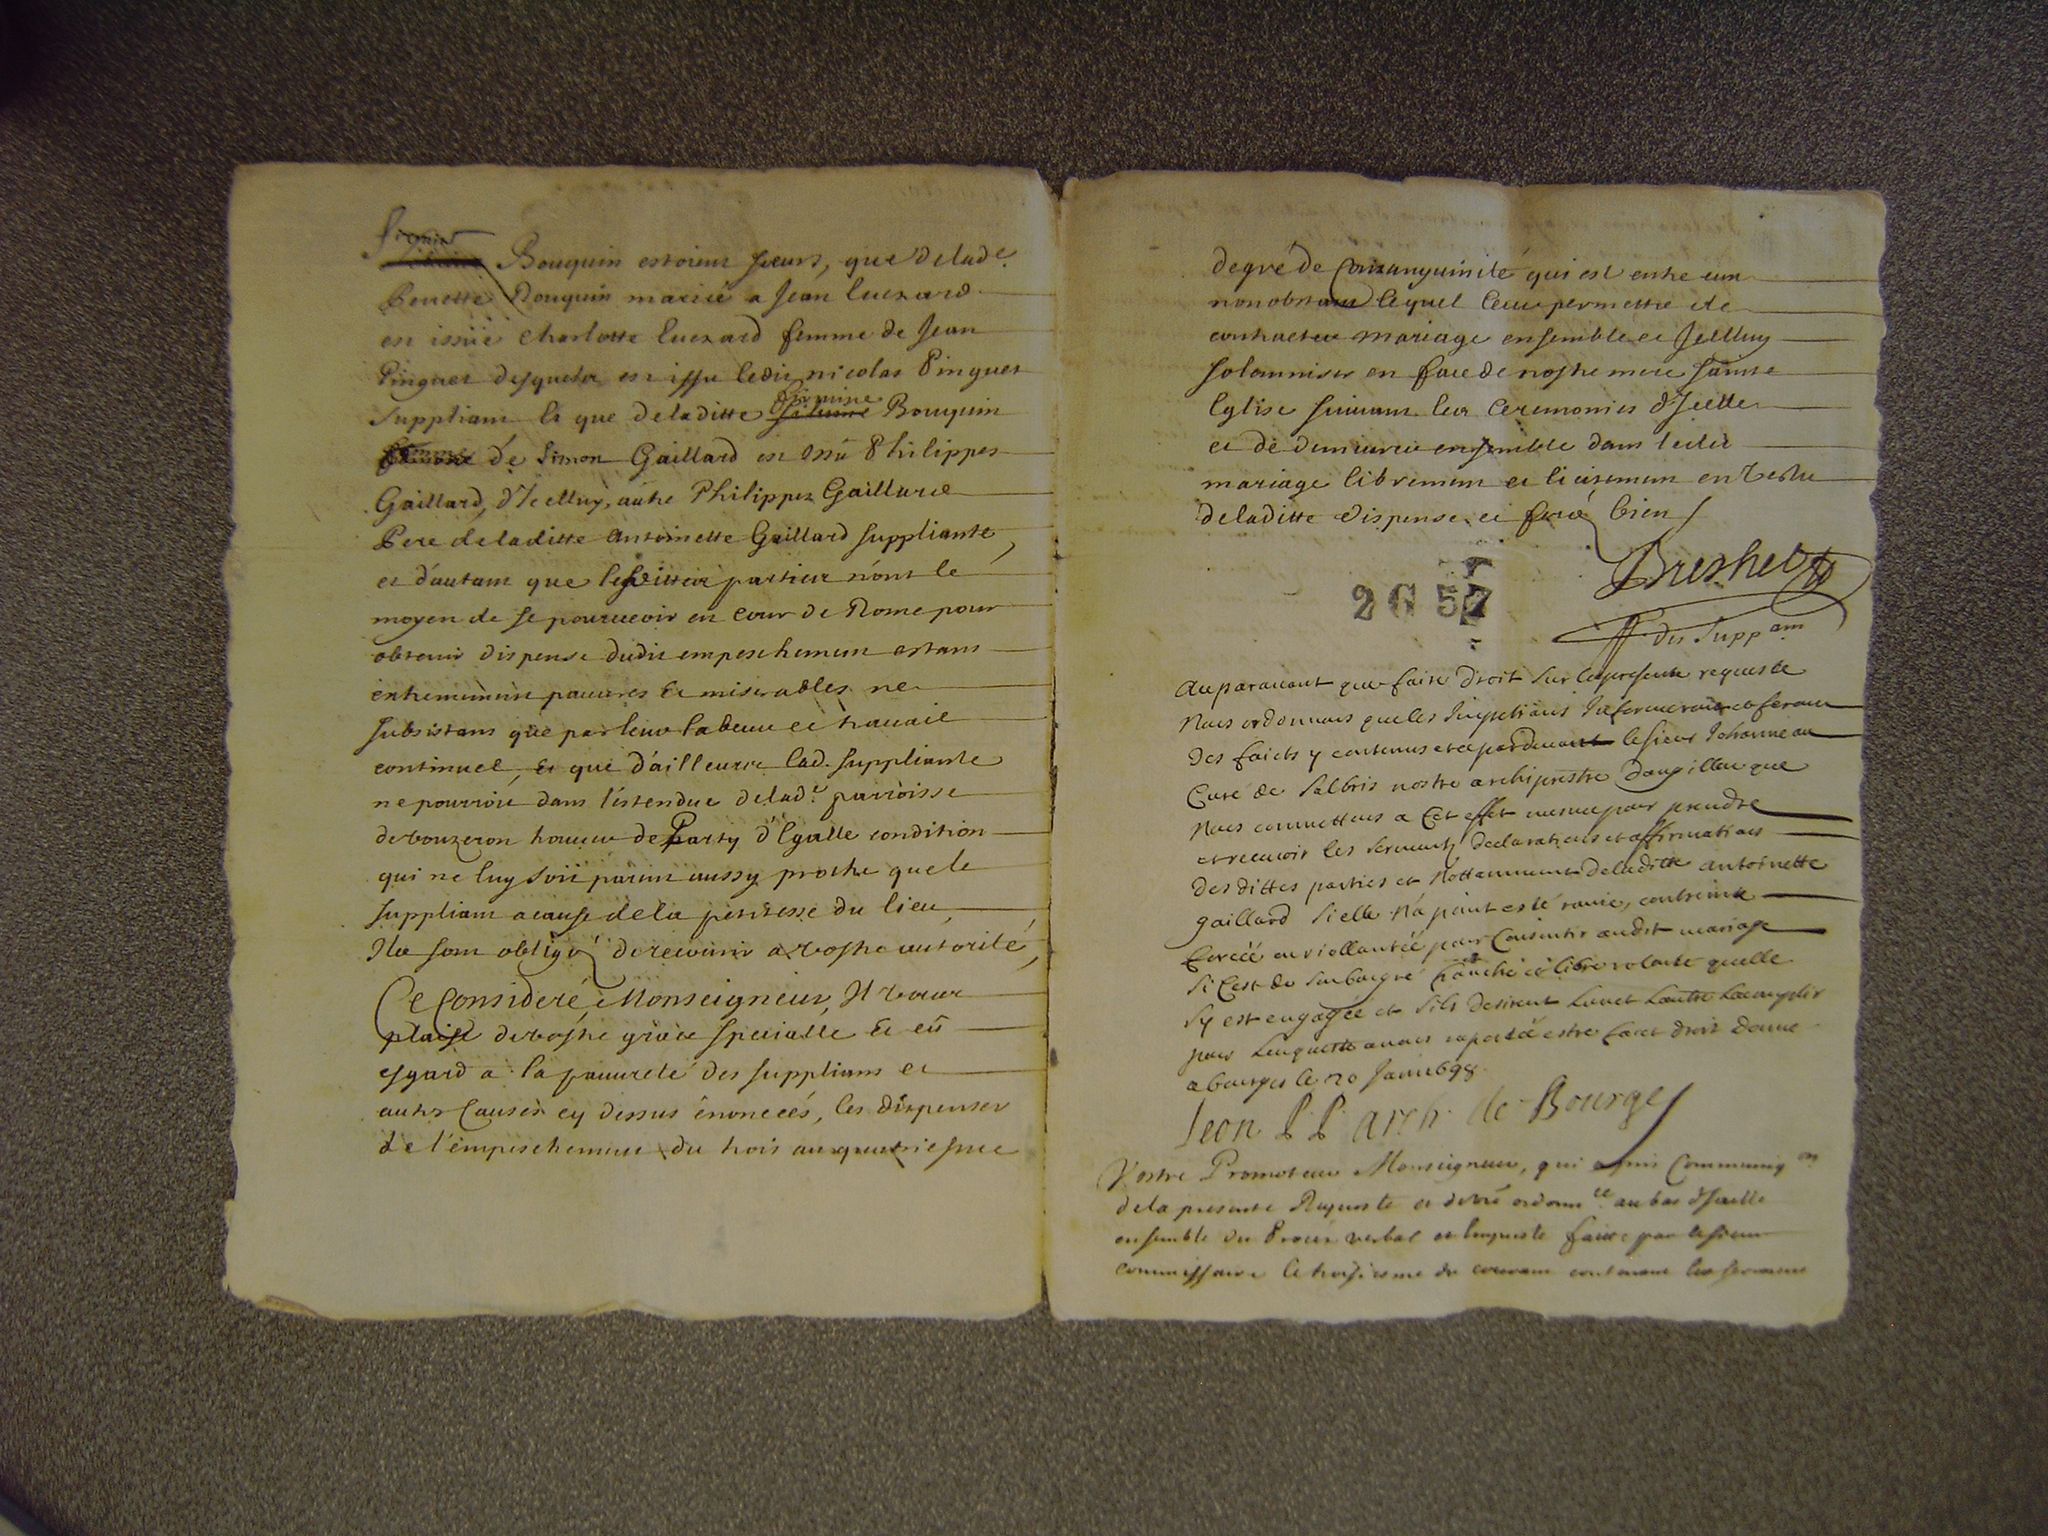 firmine
Bouquin estoient sœurs, que delad.e
Perrette Bouquin mariée a Jean Luezard
en issüe Charlotte Luezard femme de Jean
Pinguet desquels en issu ledit nicolas Pinguet
suppliant Et que deladitte firmine Bouquin
femme de Simon Gaillard en issu Philippes
Gaillard, d'Icelluy, autre Philippes Gaillard
Pere deladitte Antoinette Gaillard suppliante,
et d'autant que lesdittes parties n'ont le
moyen de se pourueoir en cour de Rome pour
obtenir dispense dudit empeschement estans
entremement pauures Et miserables ne
subsistans que par leur labeur et trauail
continuel, Et que d'ailleurs lad. suppliante
ne pourroit dans l'estendue delad.e parroisse
de vouzeron trouuer de Party d'Egalle condition
qui ne luy soit parent aussy proche que le
suppliant a cause de la petitesse du lieu,
Ils sont obligés de recourir a vostre autorité,
Ce Consideré, Monseigneur, Il vous
plaise de vostre grace specialle Et eu
esgard a la pauureté des supplians et
autres Causes cy dessus énoncées, les dispenser
de l'empeschement du trois au quatriesme
degré de Consanguinité qui est entre eux
nonobstant lequel leur permettre de
contracter mariage ensemble et Jcelluy
solemniser en face de nostre mere sainte
Eglise suiuant les Ceremonies d'Icelle
et de demeurer ensemble dans ledit
mariage librement et licitement en vertu
deladitte dispense et ferez bien
Breshet
des supp.ans
2G 57
Auparauant que faire droit sur la presente requeste
Nous ordonnons que les suppliants Informeront et feront
des faicts y contenus et ce pardeuant le sieur Johanneau
Curé de Salbris nostre archiprestre d'augillon que
nous commettons a Cet effet mesme pour prendre
et receuoir les serments, declarations et affirmations
des dittes parties et Nottamment deladitte antoinette
gaillard si elle n'a point esté rauie, contreinte
forcée ou viollantée pour Consentir audit mariage
si C'est de son bon gré franche et libre volonté quelle
s'y est engagée et s'ils desirent L'un et L'autre L'accomplir
pour L'enqueste a nous raportée estre faict droit Donné
a bourges le 20 Janu. 698
Leon P P arch. de Bourges
Vostre Promoteur Monseigneur, qui a pris Communig.on
de la presente Requeste et de v.re ordonn.ce au bas d'Icelle
ensemble du Procés verbal et Enqueste faitte par le sieur
commissaire le troisiesme du courant contenant les serments